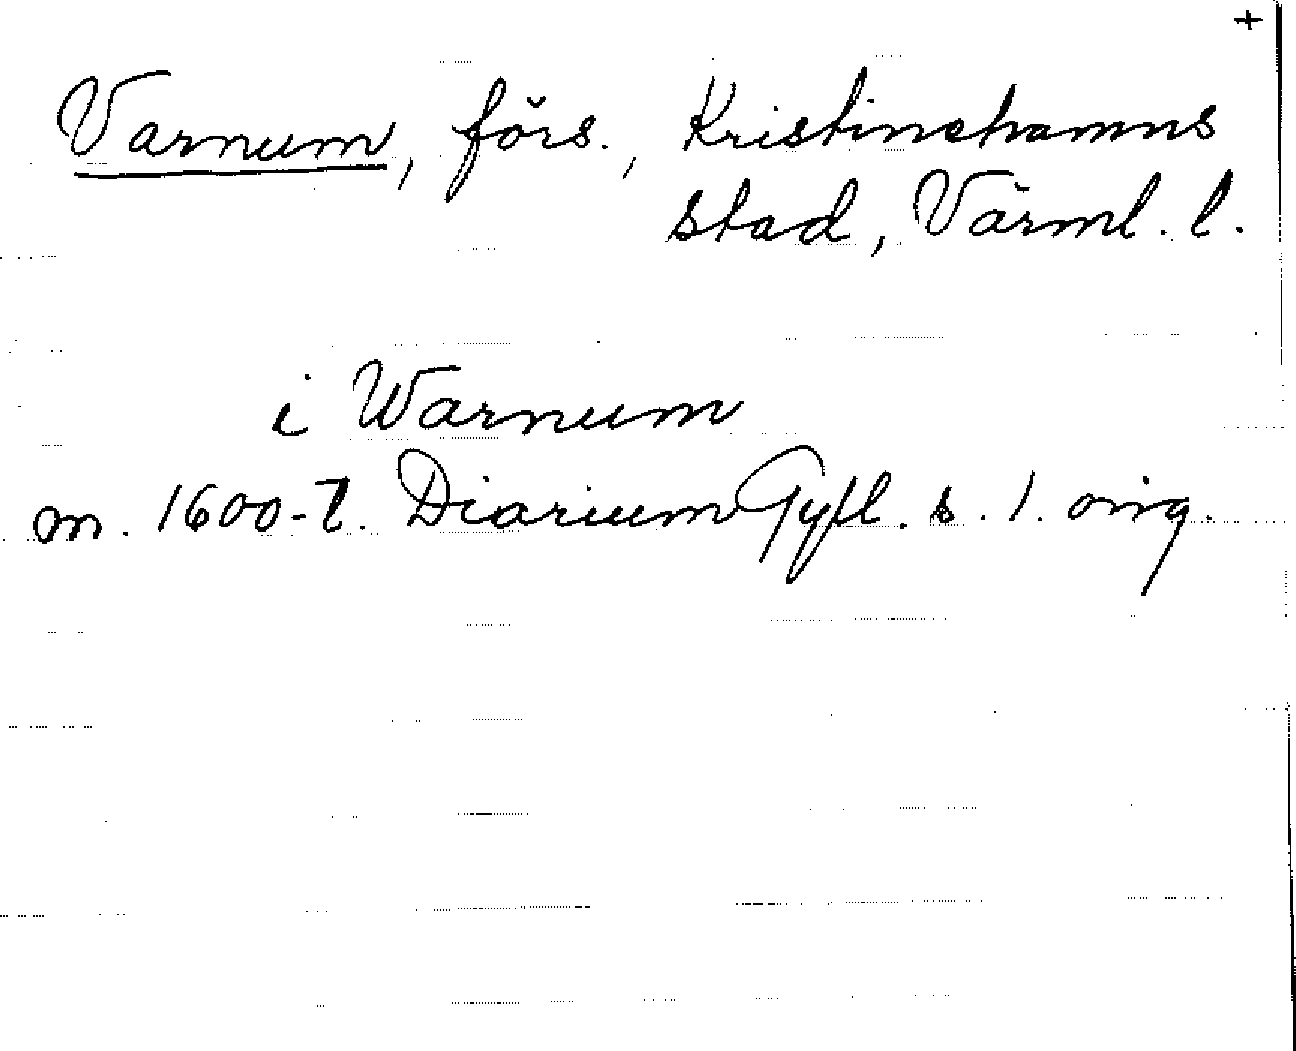 +
Varnum, förs., Kristinehamns
stad, Värml. l.
i Warnum
m. 1600-t. Diarium Gyll. s. 1. orig.